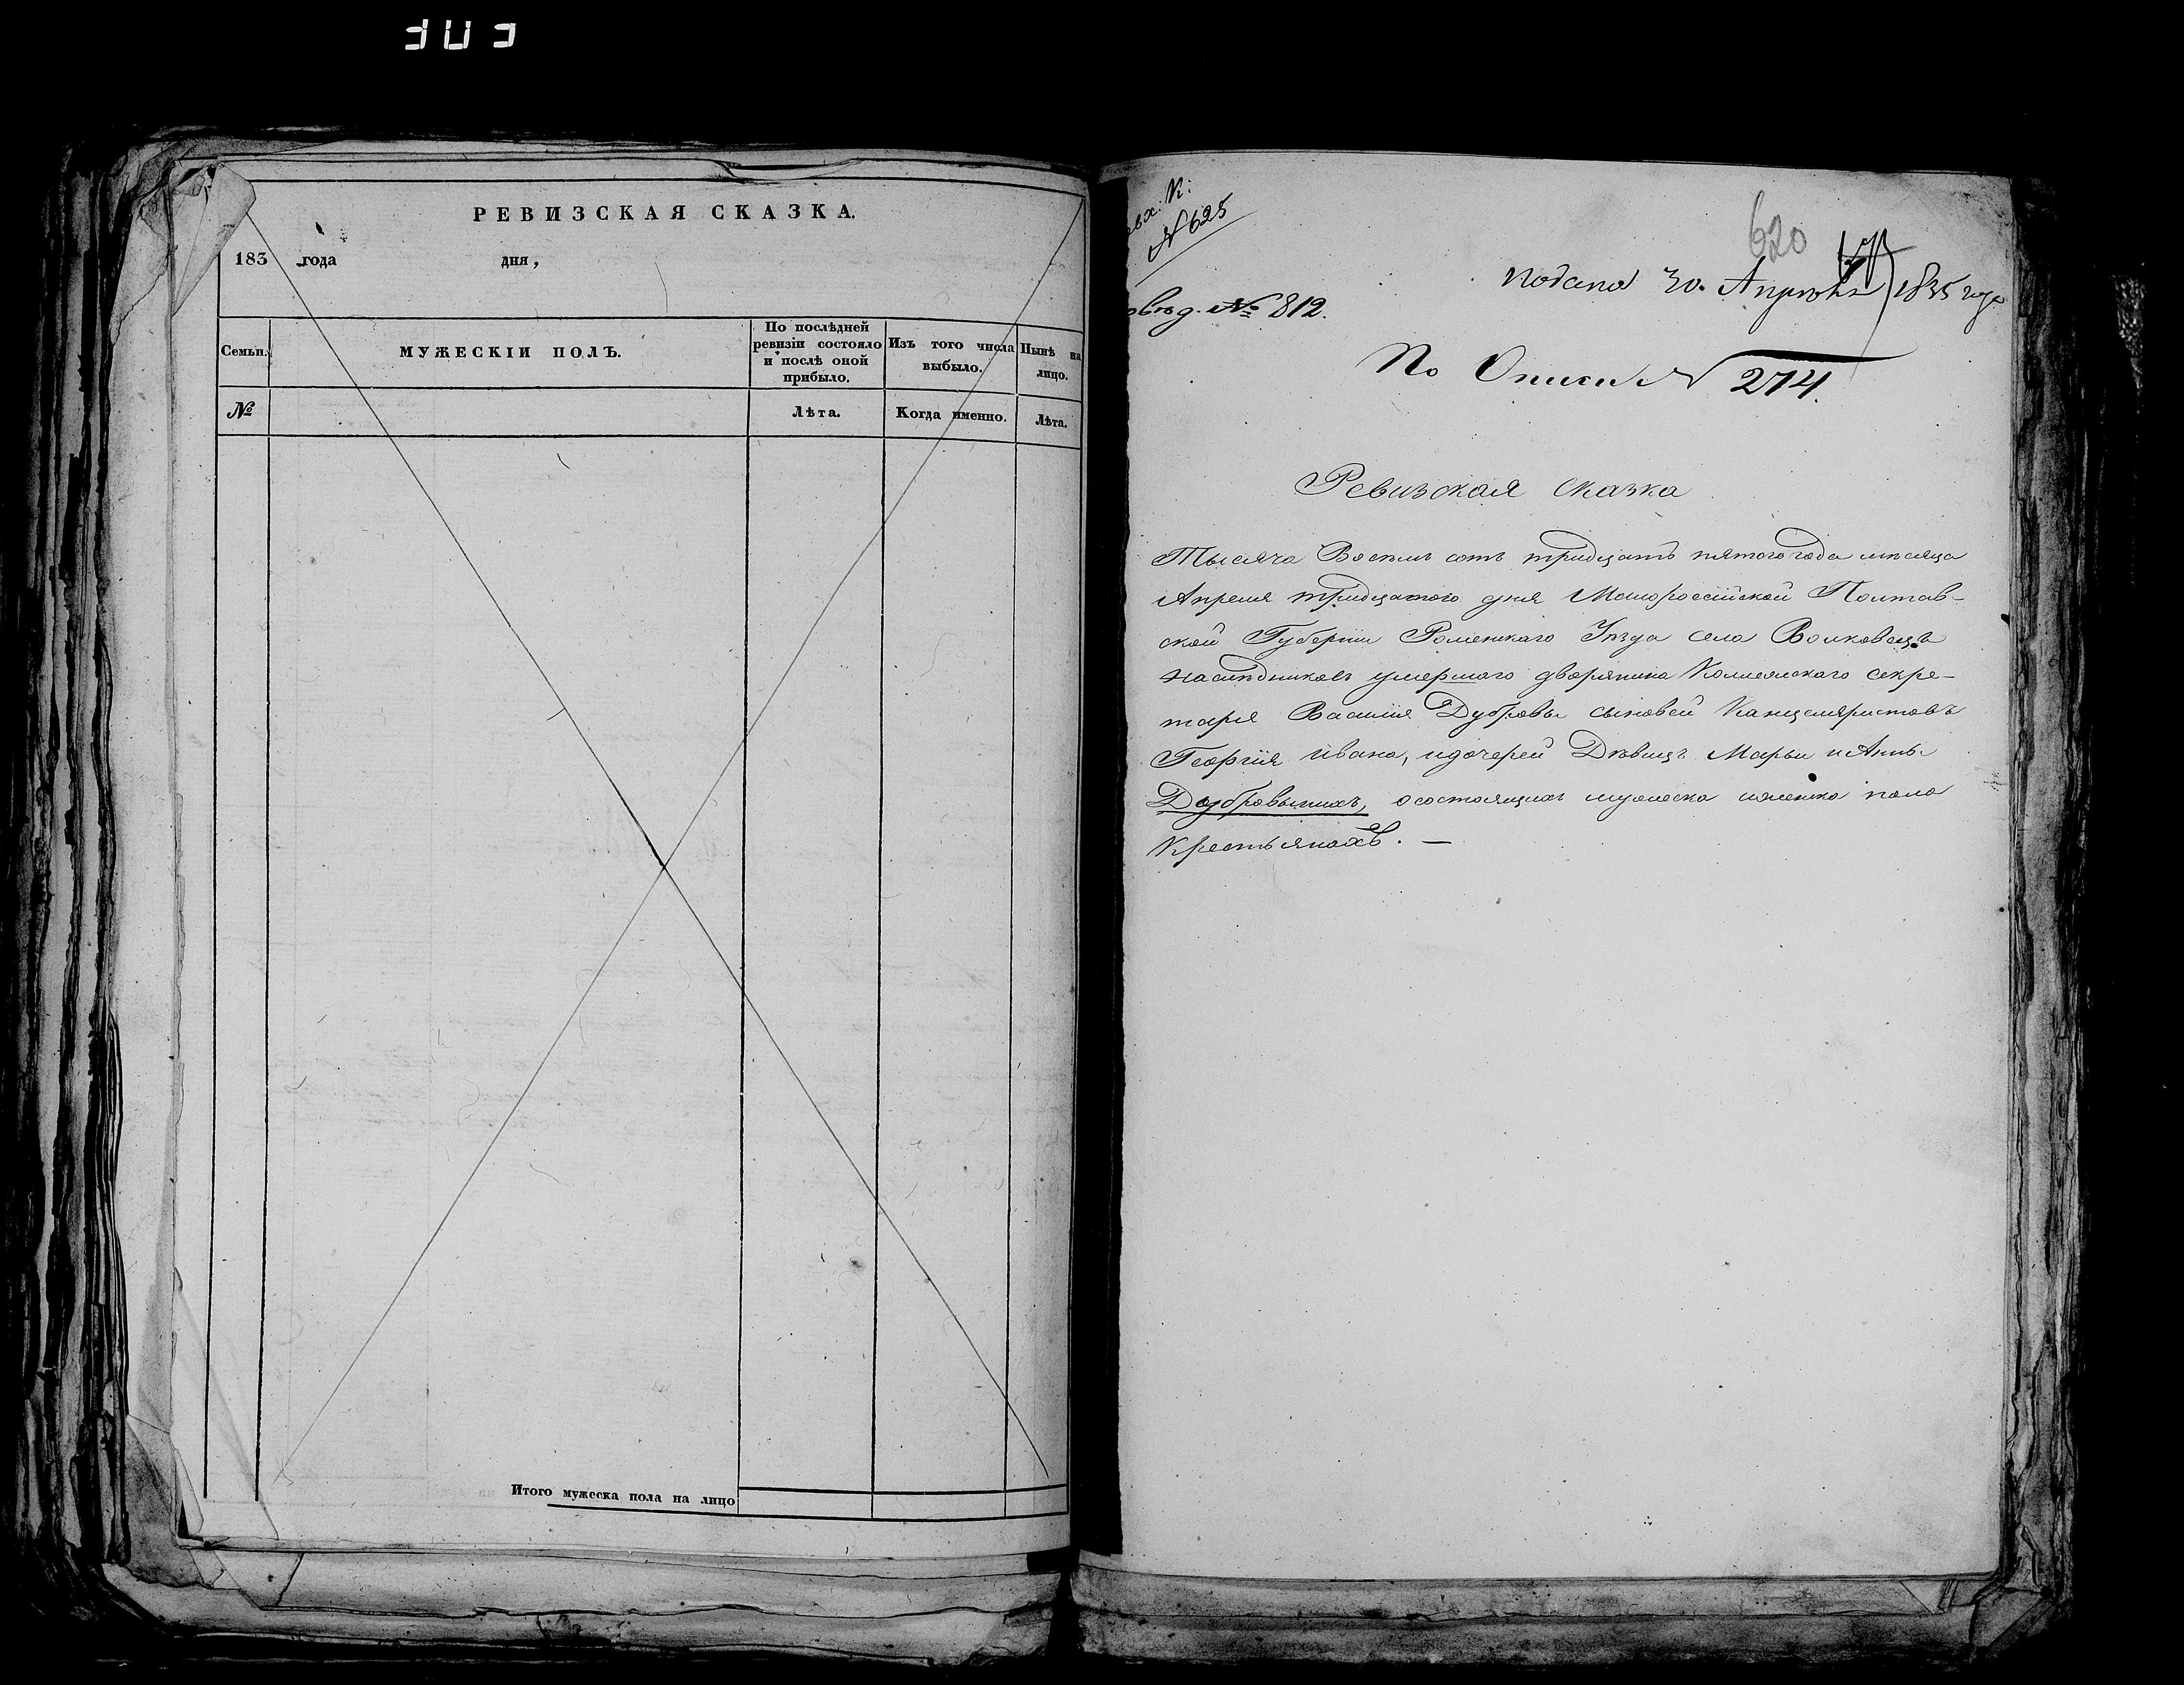 РЕВИЗСКАЯ СКАЗКА.
183 года дня,
Семьи.
МУЖЕСКІЙ ПОЛЪ.
По послѣдней ревизіи состояло и послѣ оной прибыло.
Изъ того числа выбыло.
Нынѣ на лицо.
№
Лѣта.
Когда именно.
Лѣта.
Итого мужеска пола на лицо
№ 625
620
Подана 30. Апрѣля 1835 года
№ 812.
По Описи № 274.
Ревизская сказка
Тысяча Восемь сотъ тридцать пятого года мѣсяца
Апреля тридцатого дня Малороссійской Полтав-
ской Губерніи Роменскаго Уѣзда села Волковець
наслѣдниковъ умершаго дворянина Коллежскаго секре-
таря Василія Дубровы сыновей Канцеляристовъ
Георгія Ивана, и дочерей Дѣвицъ Марьи и Анны
Дубровыхъ, о состоящихъ мужеска и женска пола
Крестьянахъ. —